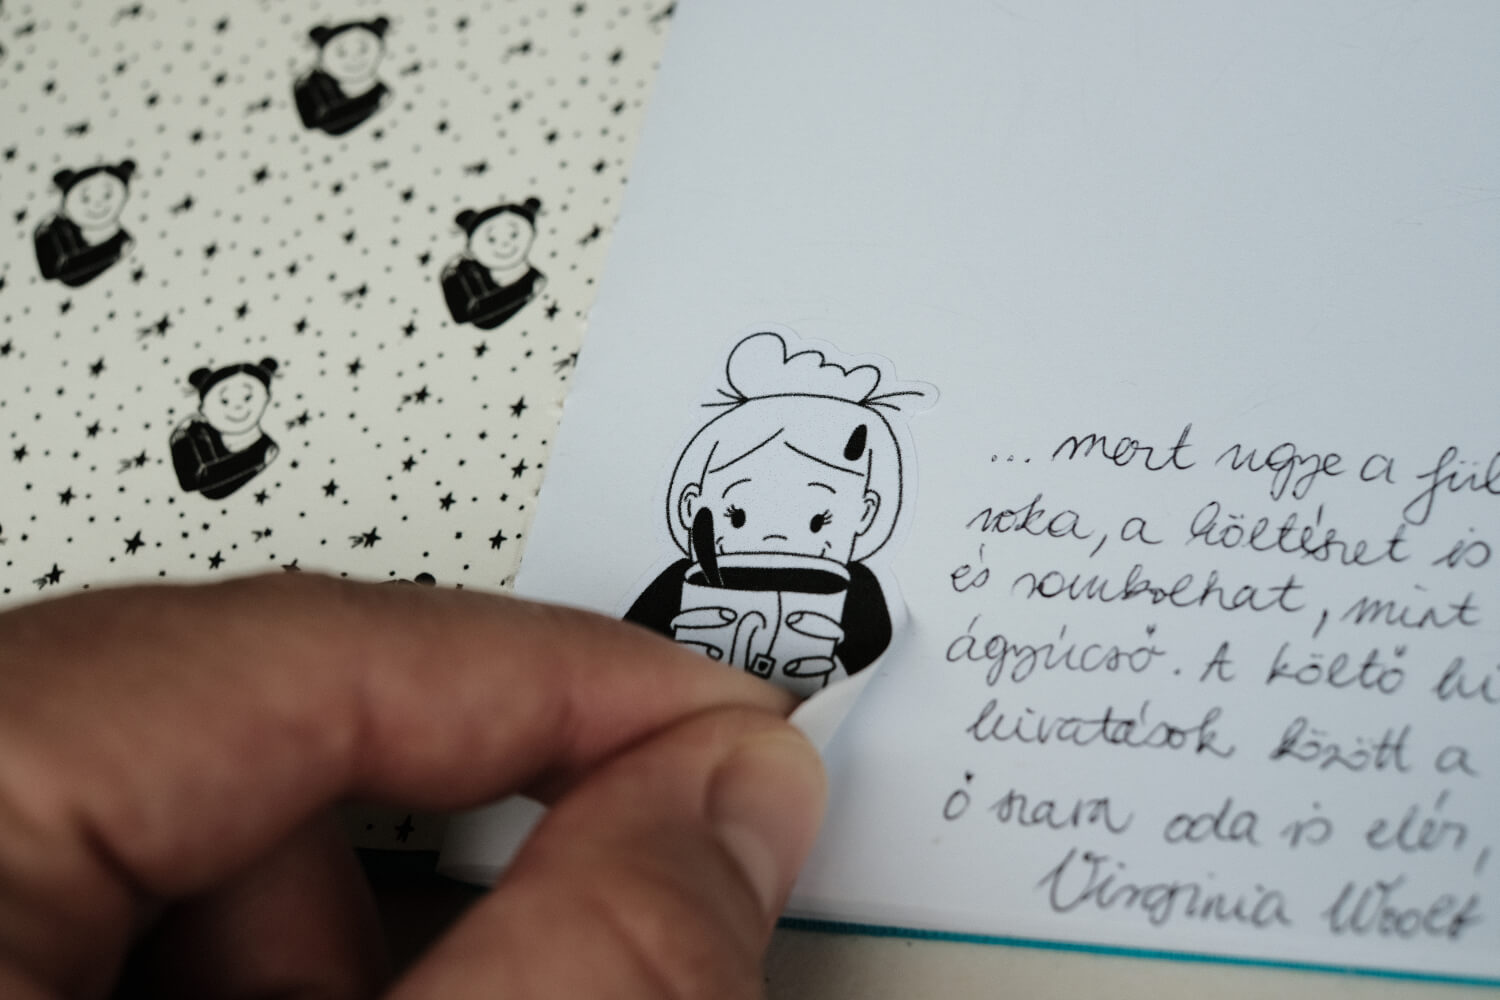 ... mert ugye a fül
roka, a költészet is
és rombolhat, mint
ágyúcső. A költő hi
hivatások között a
ő szava oda is elér,
Virginia Woolf